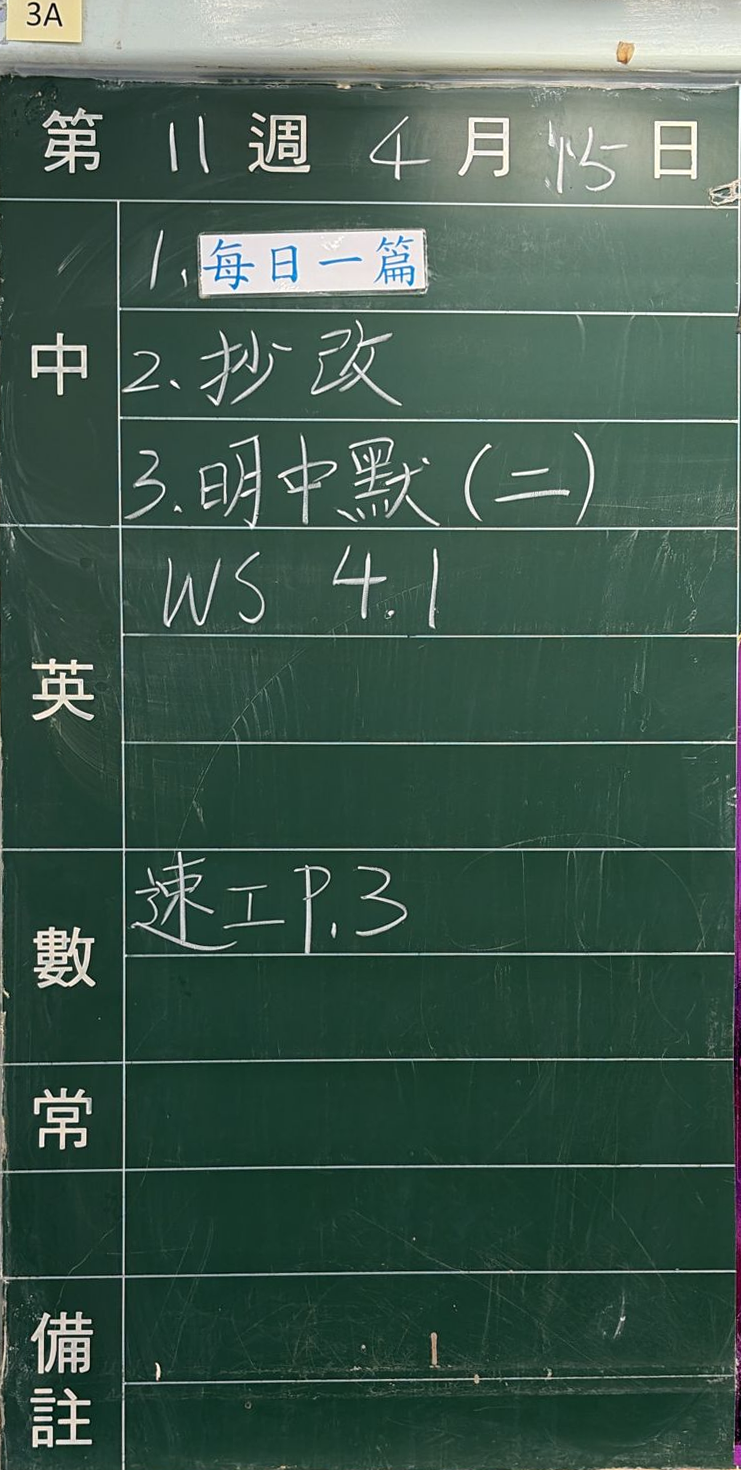 3A
第 11 週 4 月 15 日
中
1. 每日一篇
2. 抄改
3. 明中默(二)
英
WS 4.1
數
速工P.3
常
備註